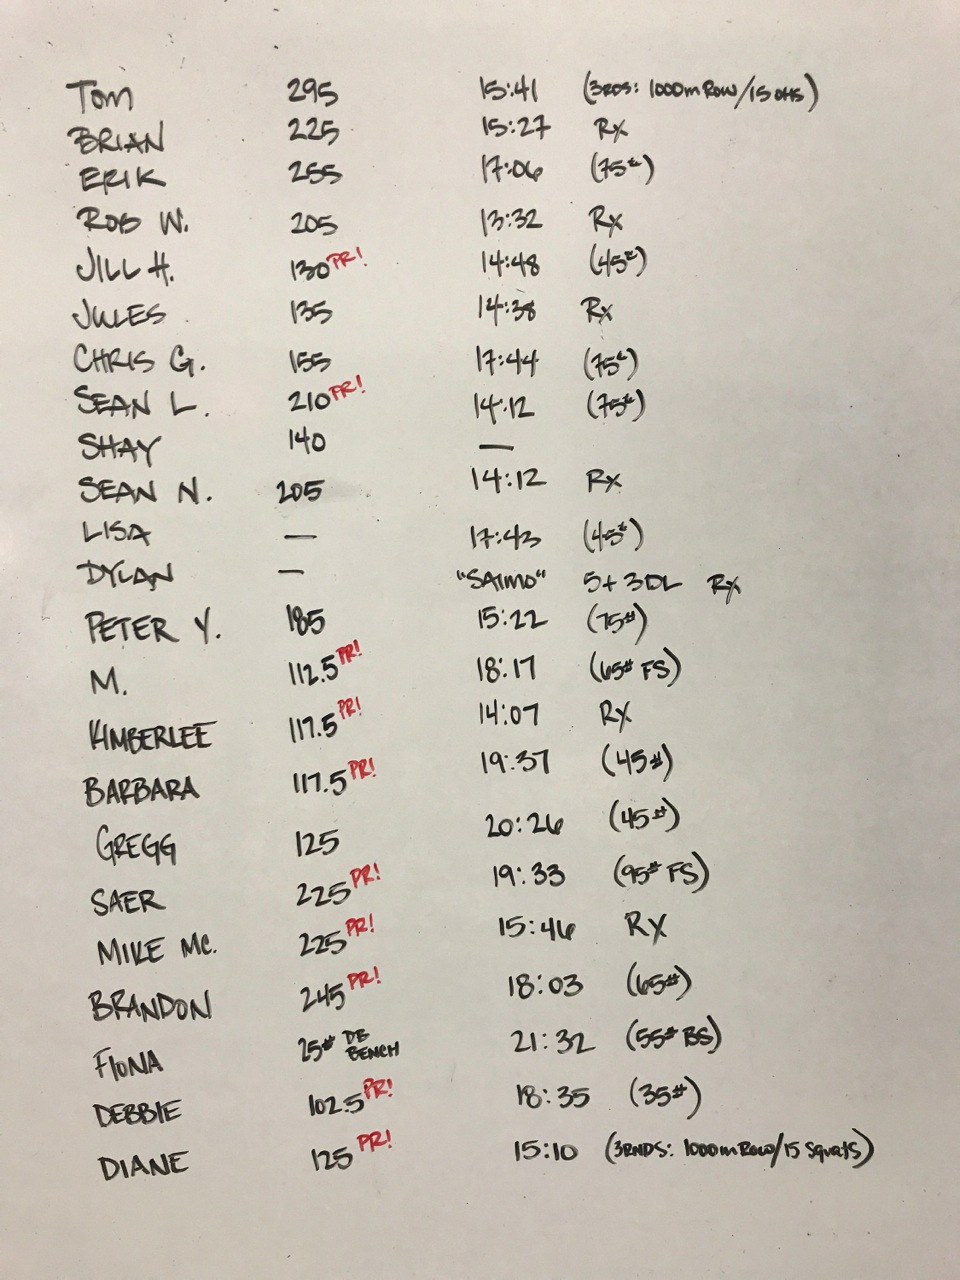 Tom 295 15:41 (3RDS: 1000m Row/15 OHS)
BRIAN 225 15:27 Rx
ERIK 255 17:06 (75#)
ROB W. 205 13:32 Rx
JILL H. 130 PR! 14:48 (45#)
JULES 135 14:38 Rx
CHRIS G. 155 17:44 (75#)
SEAN L. 210 PR! 14:12 (75#)
SHAY 140 —
SEAN N. 205 14:12 Rx
LISA — 17:43 (45#)
DYLAN — "SATMO" 5+3DL Rx
PETER Y. 185 15:22 (75#)
M. 112.5 PR! 18:17 (65# FS)
KIMBERLEE 117.5 PR! 14:07 Rx
BARBARA 117.5 PR! 19:37 (45#)
GREGG 125 20:26 (45#)
SAER 225 PR! 19:33 (95# FS)
MIKE Mc. 225 PR! 15:46 RX
BRANDON 245 PR! 18:03 (65#)
FIONA 25# DB BENCH 21:32 (55# BS)
DEBBIE 102.5 PR! 18:35 (35#)
DIANE 125 PR! 15:10 (3RNDS: 1000m Row/15 Squats)